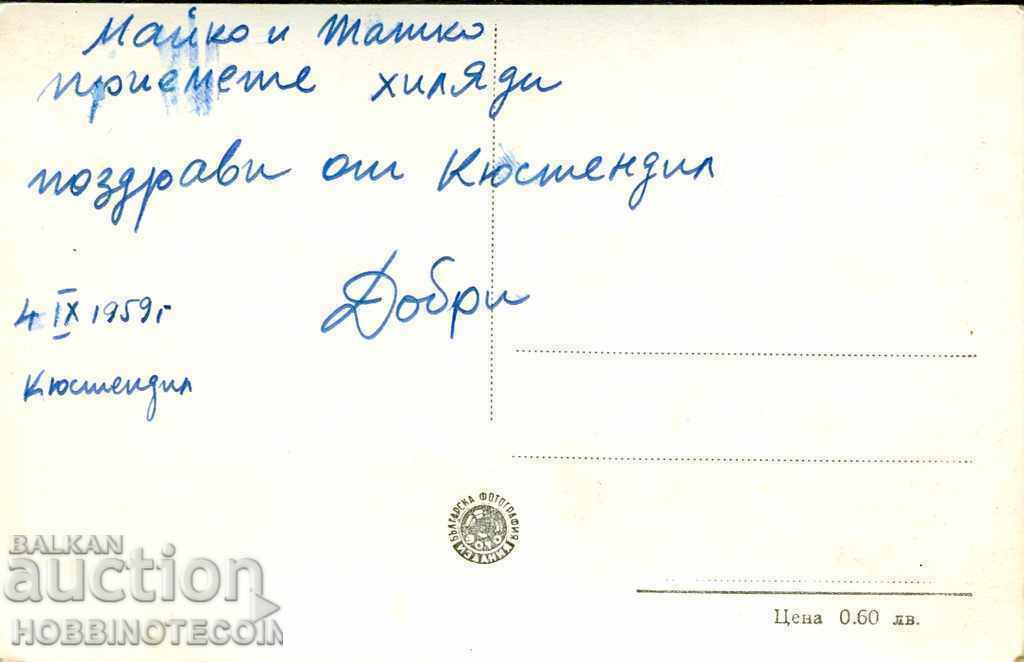 Майко и Татко
приемете хиляди
поздрави от Кюстендил
Добри
4 IX 1959 г
Кюстендил
БЪЛГАРСКА ФОТОГРАФИЯ
Цена 0.60 лв.
BALKAN
auction
HOBBINOTECOIN